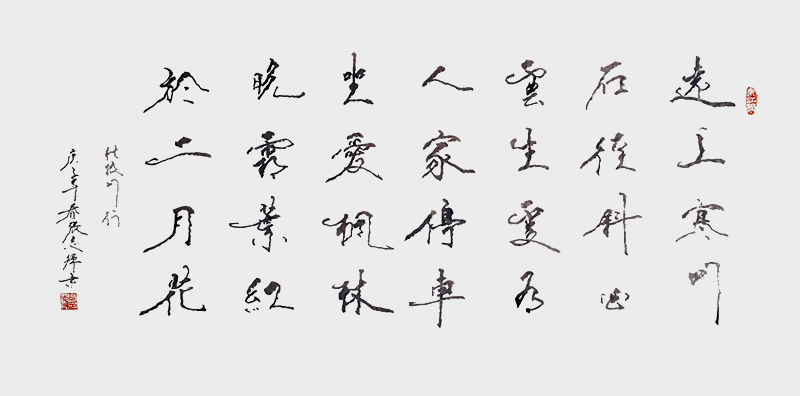 遠上寒山
石徑斜白
雲生處有
人家停車
坐愛楓林
晚霜葉紅
於二月花
杜牧山行
庚子年春張書